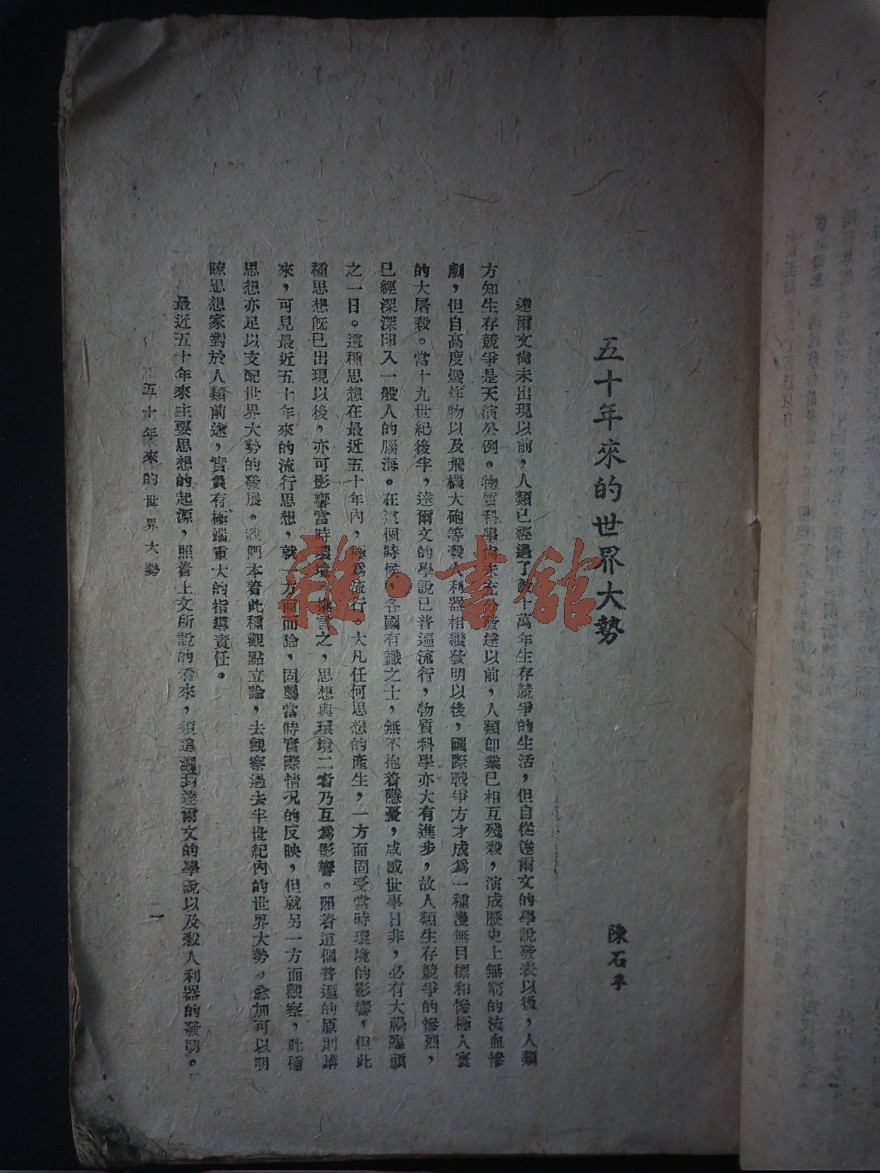 五十年來的世界大勢
陳石孚
達爾文尙未出現以前，人類已經過了數十萬年生存競爭的生活，但自從達爾文的學說發表以後，人類
方知生存競爭是天演公例。物質科學尙未充分發達以前，人類卽業已相互殘殺，演成歷史上無窮的流血慘
劇，但自高度爆炸物以及飛機大砲等殺人利器相繼發明以後，國際戰爭方才成爲一種漫無目標和慘極人寰
的大屠殺。當十九世紀後半，達爾文的學說已普遍流行，物質科學亦大有進步，故人類生存競爭的慘烈，
已經深深印入一般人的腦海。在這個時候，各國有識之士，無不抱着隱憂，咸感世事日非，必有大禍臨頭
之一日。這種思想在最近五十年內，極爲流行。大凡任何思想的產生，一方面固受當時環境的影響，但此
種思想旣已出現以後，亦可影響當時環境，換言之，思想與環境二者乃互爲影響。照着這個普遍的原則講
來，可見最近五十年來的流行思想，就一方面而論，固屬當時實際情況的反映，但就另一方面觀察，此種
思想亦足以支配世界大勢的發展。我們本着此種觀點立論，去觀察過去半世紀內的世界大勢，愈加可以明
瞭思想家對於人類前途，實負有極端重大的指導責任。
最近五十年來主要思想的起源，照着上文所說的看來，須追溯到達爾文的學說以及殺人利器的發明。
五十年來的世界大勢
一
雜·書館